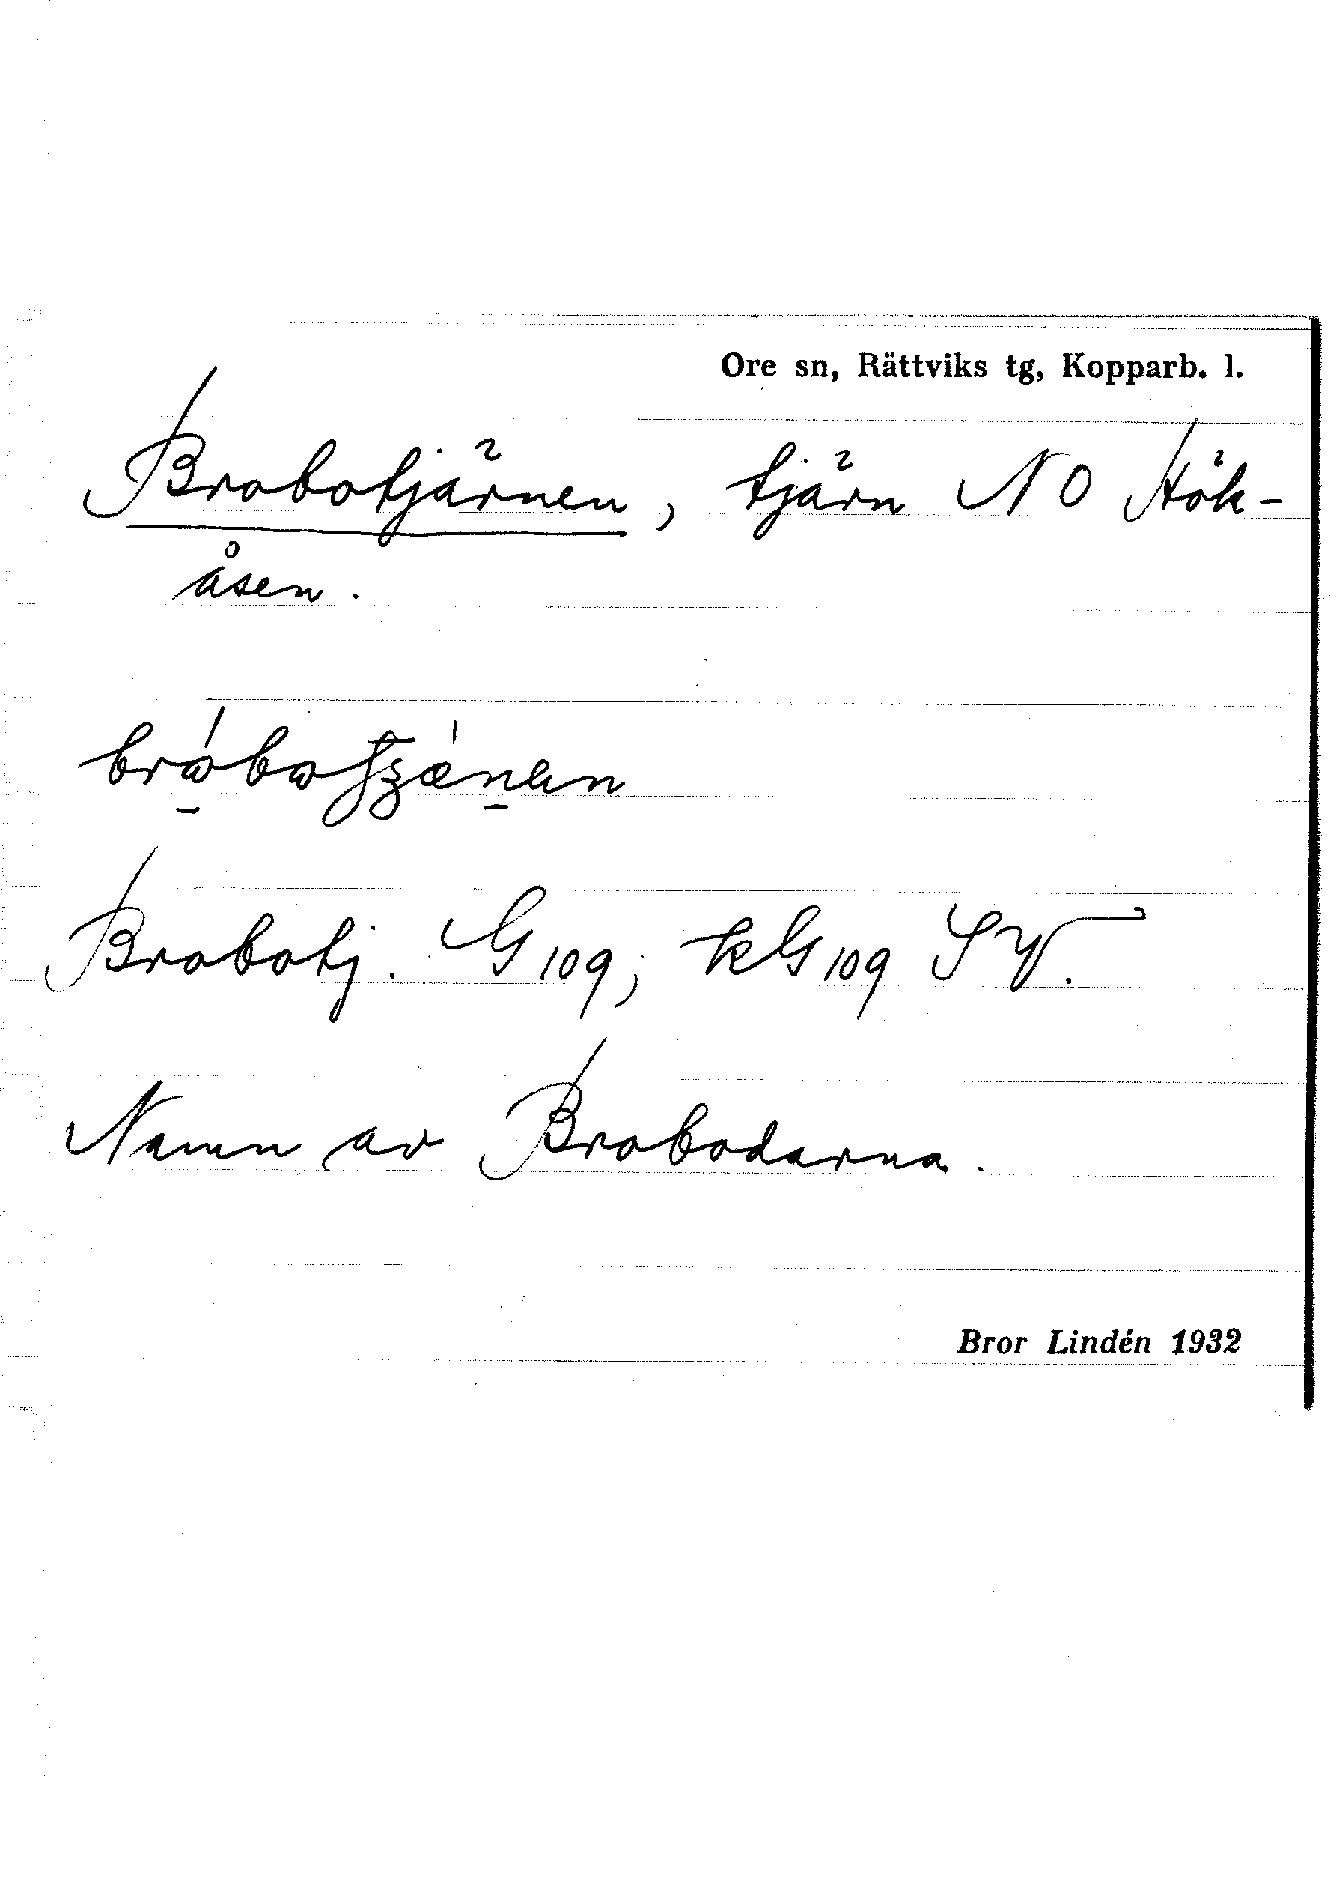 Ore sn, Rättviks tg, Kopparb. l.
Brobotjärnen, tjärn NO Hök-
åsen.
Brobotj. G 109; kG 109 SV.
Namn av Brobodarna.
Bror Lindén 1932